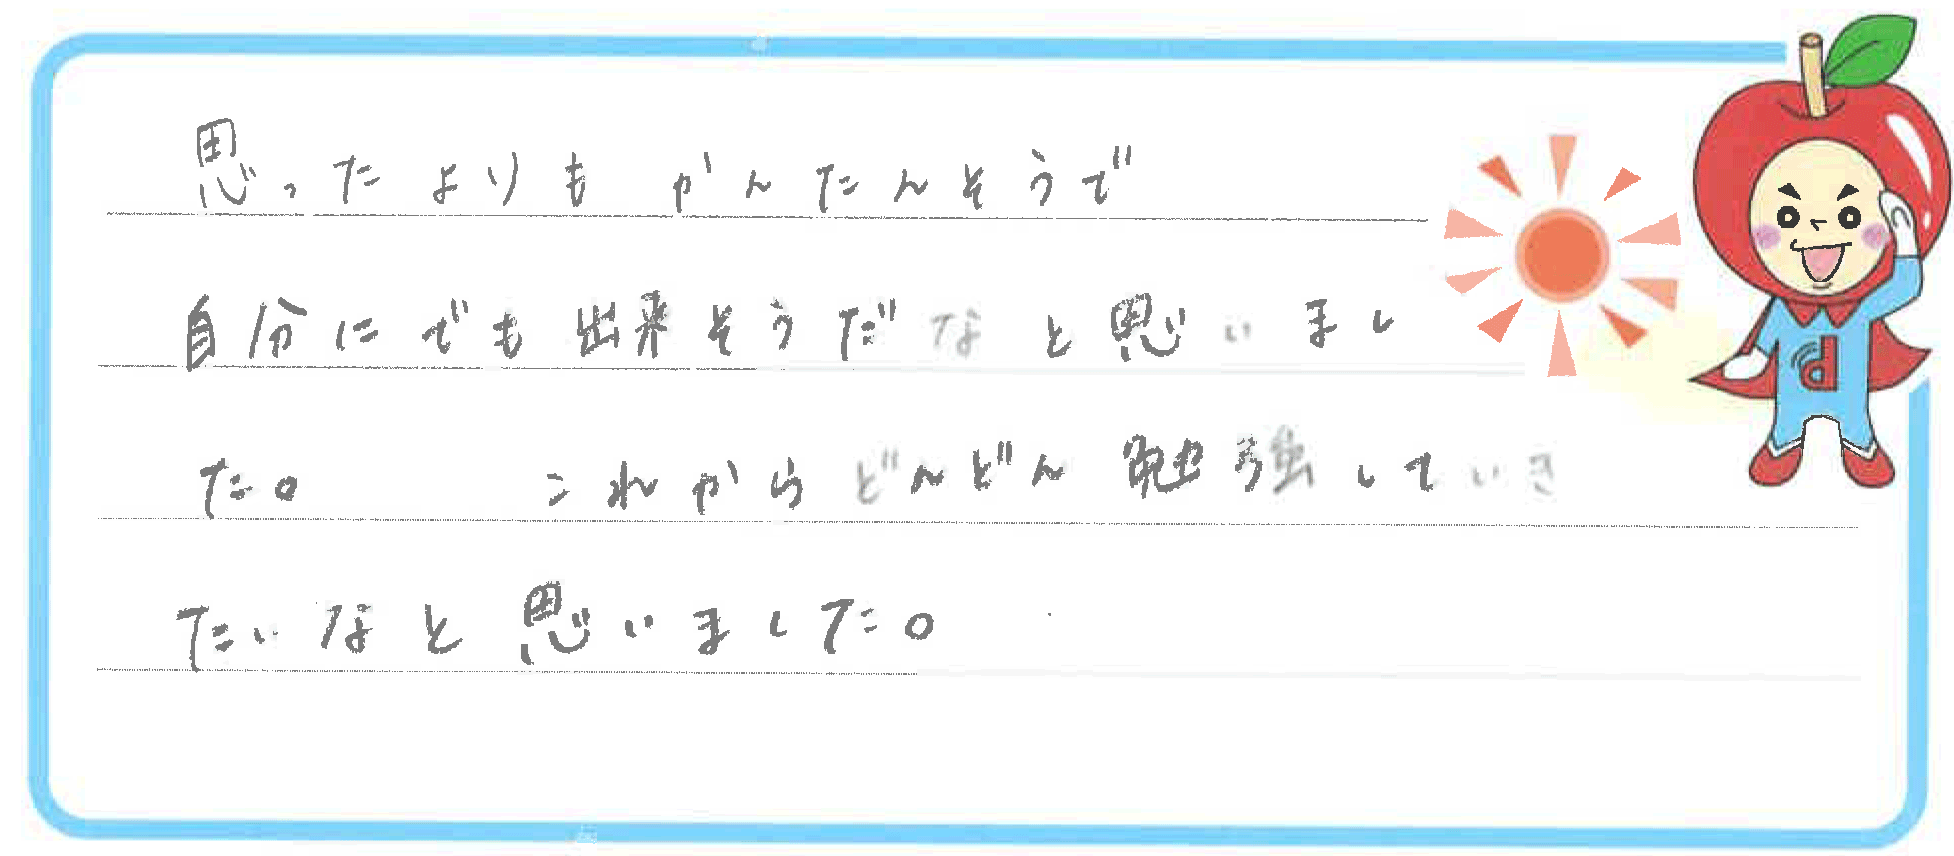 思ったよりもかんたんそうで
自分にでも出来そうだなと思いまし
た。 これからどんどん勉強していき
たいなと思いました。